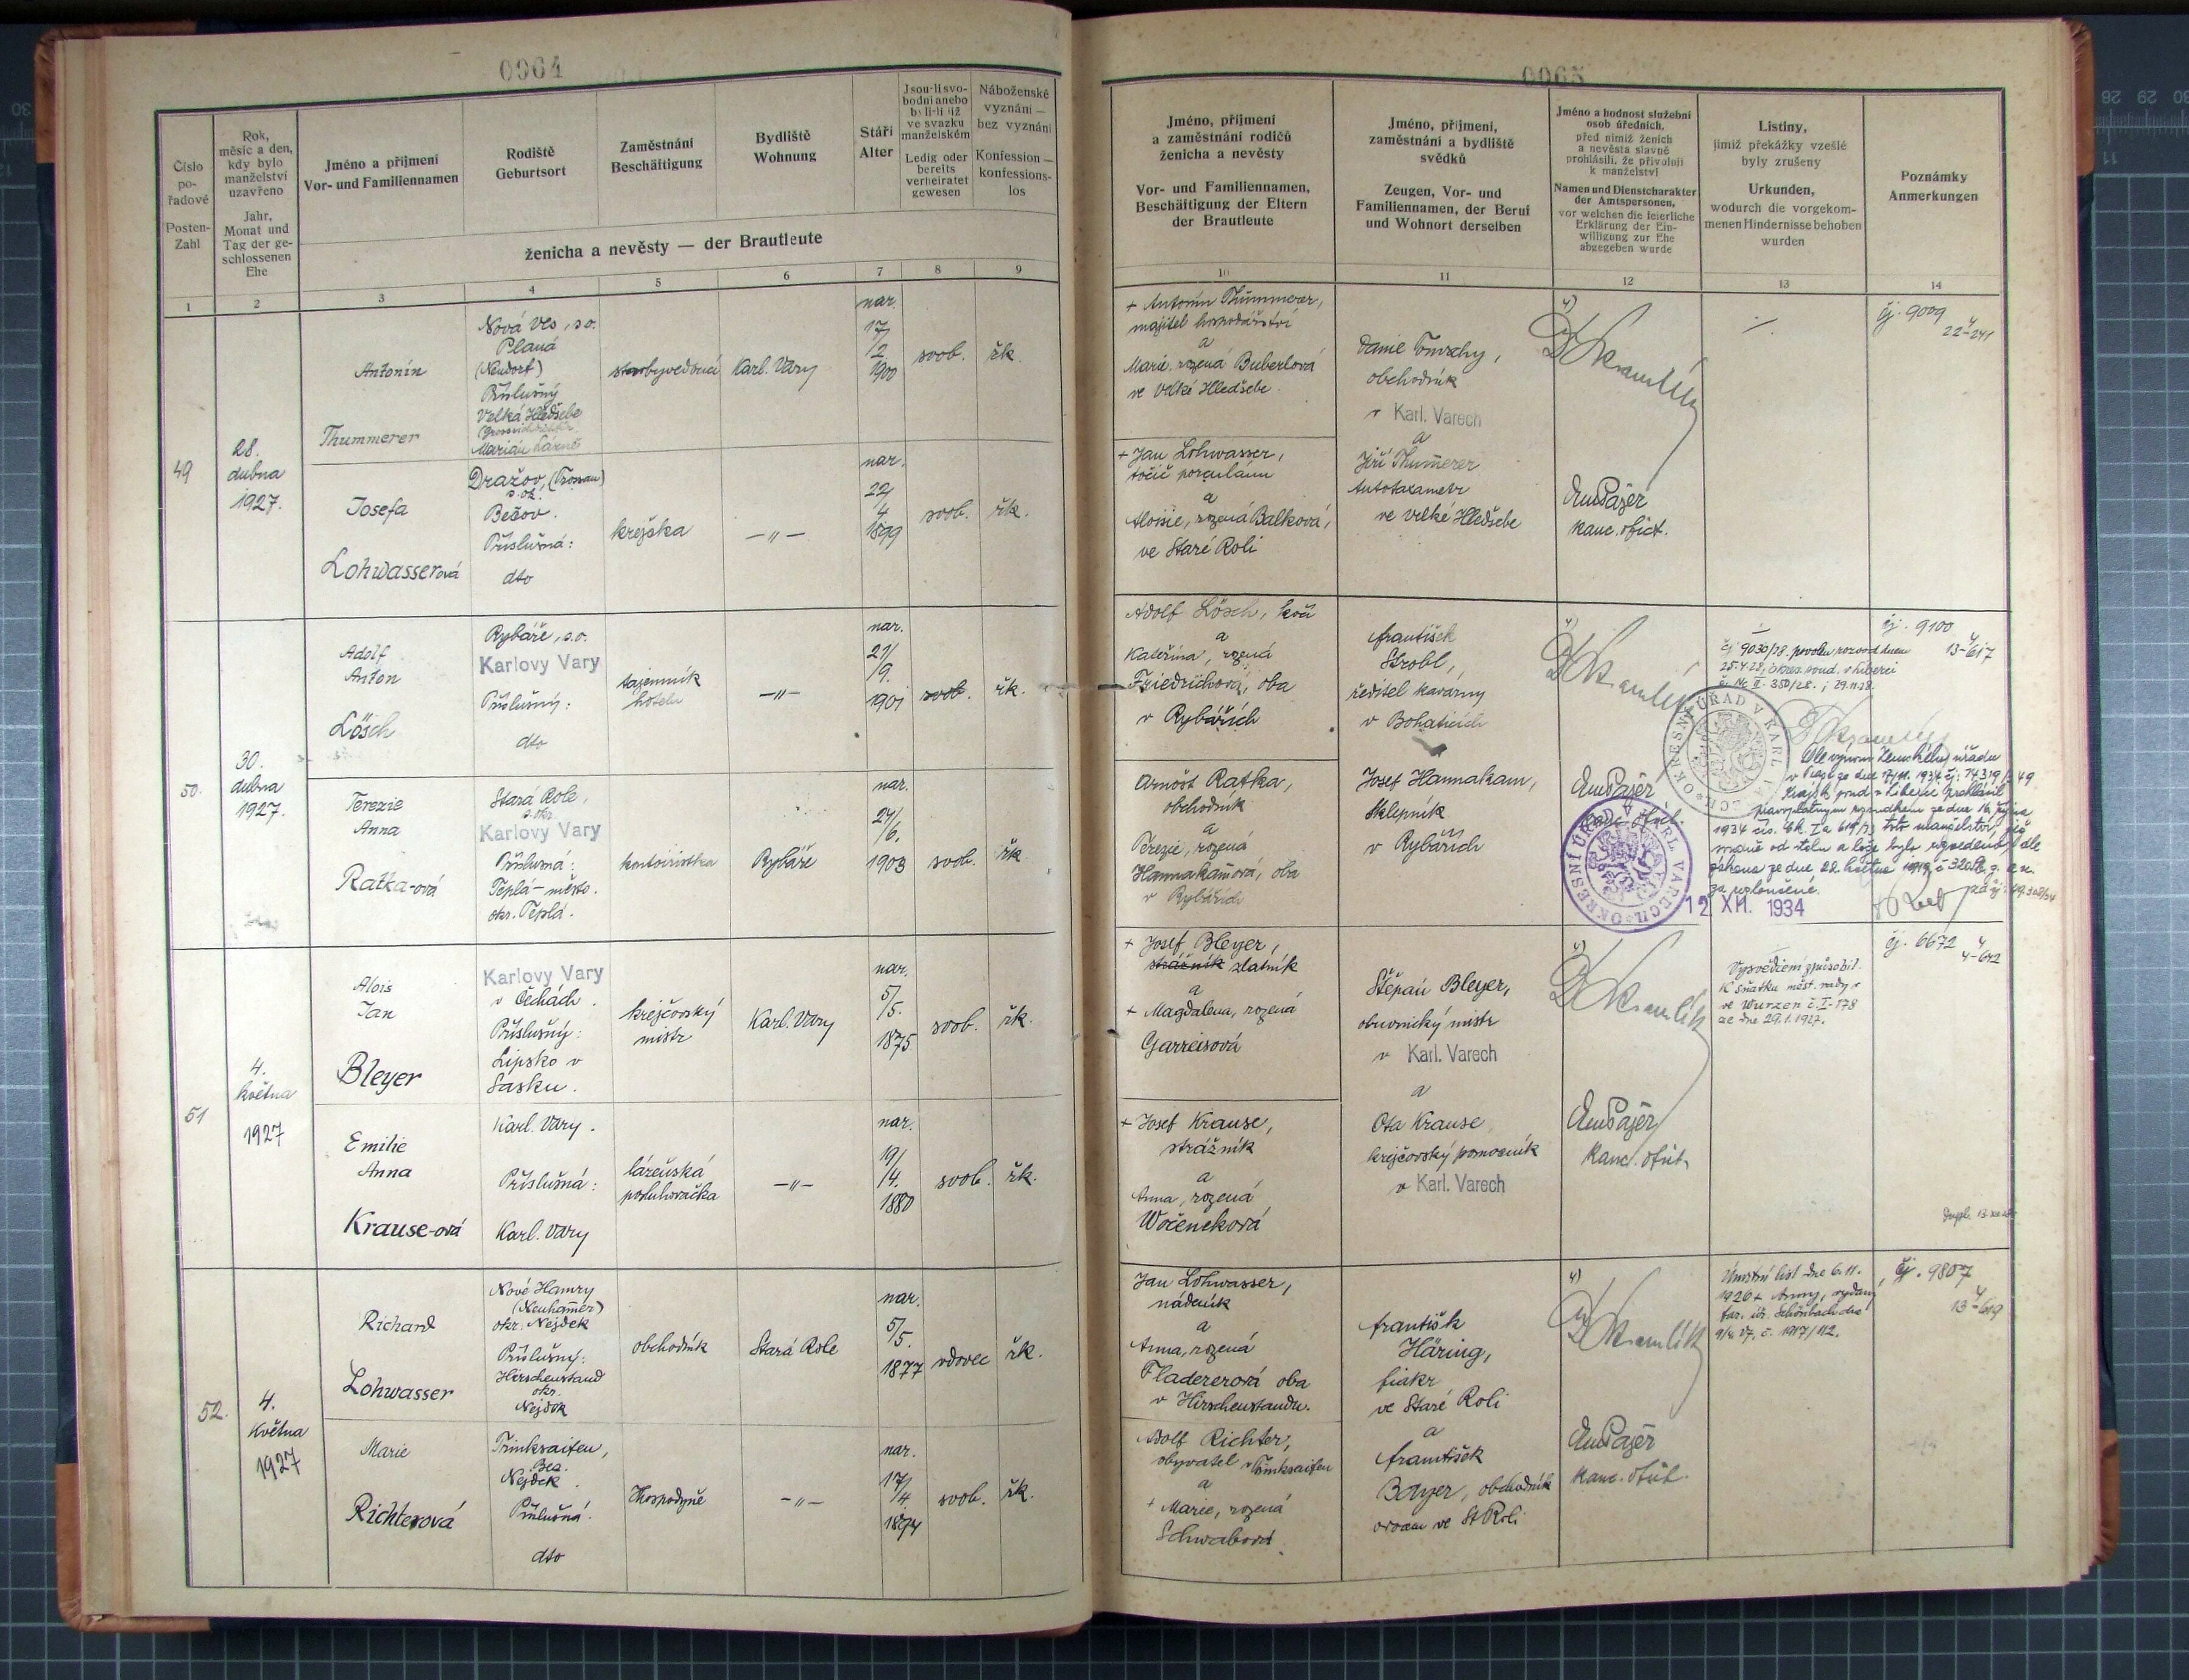 0064
Číslo
po-
řadové
Posten-
Zahl
Rok,
měsíc a den,
kdy bylo
manželství
uzavřeno
Jahr,
Monat und
Tag der ge-
schlossenen
Ehe
Jméno a příjmení
Vor- und Familiennamen
Rodiště
Geburtsort
Zaměstnání
Beschäftigung
Bydliště
Wohnung
Stáří
Alter
Jsou-li svo-
bodni anebo
byli-li již
ve svazku
manželském
Ledig oder
bereits
verheiratet
gewesen
Náboženské
vyznání —
bez vyznání
Konfession —
konfessions-
los
ženicha a nevěsty — der Brautleute
1 2 3 4 5 6 7 8 9
49
28.
dubna
1927.
Antonín
Thummerer
Nová Ves, s.o.
Planá
(Neudorf)
Příslušný
Velká Hleďsebe
Marián. Lázně
Karl. Vary
nar.
17/
2.
1900
svob.
řk.
Josefa
Lohwasserová
Dražov, (Trossau)
s. ok.
Bečov.
Příslušná:
dto
krejska
—„—
nar.
22/
4
1899
svob.
řk.
50.
30.
dubna
1927.
Adolf
Anton
Lösch
Rybáře, s.o.
Karlovy Vary
Příslušný:
dto
tajemník
hotelu
—„—
nar.
21/
9.
1901
svob.
řk.
Terezie
Anna
Ratka-ová
Stará Role,
s. okr.
Karlovy Vary
Příslušná:
Teplá-město.
okr. Teplá.
kontoiristka
Rybáře
nar.
24/
6.
1903
svob.
řk.
51
4.
května
1927
Alois
Jan
Bleyer
Karlovy Vary
v Čechách.
Příslušný:
Lipsko v
Sasku.
krejčovský
mistr
Karl. Vary
nar.
5/
5.
1875
svob.
řk.
Emilie
Anna
Krause-ová
Karl. Vary.
Příslušná:
Karl. Vary
lázeňská
posluhovačka
—„—
nar.
19/
4.
1880
svob.
řk.
52.
4.
Května
1927
Richard
Lohwasser
Nové Hamry
(Neuhamer)
okr. Nejdek
Příslušný:
Hirschenstand
okr.
Nejdek
obchodník
Stará Role
nar.
5/
5.
1877
vdovec
řk.
Marie
Richterová
Trinksaifen,
Bez.
Nejdek.
Příslušná:
dto
Hospodyně
—„—
nar.
17/
4
1894
svob.
řk.
0065
Jméno, příjmení
a zaměstnání rodičů
ženicha a nevěsty
Vor- und Familiennamen,
Beschäftigung der Eltern
der Brautleute
Jméno, příjmení,
zaměstnání a bydliště
svědků
Zeugen, Vor- und
Familiennamen, der Beruf
und Wohnort derselben
Jméno a hodnost služební
osob úředních,
před nimiž ženich
a nevěsta slavně
prohlásili, že přivolují
k manželství
Namen und Dienstcharakter
der Amtspersonen,
vor welchen die feierliche
Erklärung der Ein-
willigung zur Ehe
abgegeben wurde
Listiny,
jimiž překážky vzešlé
byly zrušeny
Urkunden,
wodurch die vorgekom-
menen Hindernisse behoben
wurden
Poznámky
Anmerkungen
10 11 12 13 14
+ Antonín Thummerer,
majitel hospodářství
a
Marie, rozená Buberlová
ve Velké Hleďsebe.
+ Jan Lohwasser,
točič porculánu
a
Aloisie, rozená Balková,
ve Staré Roli
obchodník
v Karl. Varech
a
Jiří Thumerer
Autotaxametr
ve Velké Hleďsebe
Em Pajer
kanc. ofict.
čj. 9009
22-241
Adolf Lösch, kočí
a
Kateřina, rozená
Friedrichová, oba
v Rybářích
Arnošt Ratka,
obchodník
a
Terezie, rozená
Hannakamová, oba
v Rybářích
František
Strobl,
ředitel kavárny
v Bohaticích
Josef Hannakam,
Sklepník
v Rybářích
Em Pajer
OKRESNÍ ÚŘAD V KARL. VARECH
čj. 9030/28. povolen rozvod dnem
OKRESNÍ ÚŘAD V KARL. VARECH
Dle výnosu Zemského úřadu
v Praze ze dne 17/11. 1934 čj: 74319/
Krajsk. soud v Liberci prohlásil
pravoplatným rozsudkem ze dne 16. října
1934 čís. Ck. I a 619/33 toto manželství, jež
zákona ze dne 22. května 1919 č 320 Sb. z. a n.
za rozloučené.
12. XII. 1934
čj. 9100
13-617
+ Josef Bleyer,
strážník zlatník
a
+ Magdalena, rozená
Garreisová
+ Josef Krause,
strážník
a
Anna, rozená
Wočeneková
Štěpán Bleyer,
obuvnický mistr
v Karl. Varech
a
Ota Krause,
krejčovský pomocník
v Karl. Varech
Em Pajer
Kanc. ofict.
Vysvědčení způsobil.
k sňatku měst. rady
ve Wurzen č. I-178
ze dne 29.1.1927.
čj. 6672
4-642
Jan Lohwasser,
nádeník
a
Anna, rozená
Fladererová oba
v Hirschenstandu.
Adolf Richter,
obyvatel v Trinksaifen
a
+ Marie, rozená
Schwabová
František
Häring,
fiakr
ve Staré Roli
a
František
Bayer, obchodník
ovocem ve St Roli
Em Pajer
Kanc. ofict.
Úmrtní list dne 6.11.
1926 + Anny, vydaný
far. úř. Schönbach dne
9/4. 27. č. 1917/112.
čj. 9807
13-619